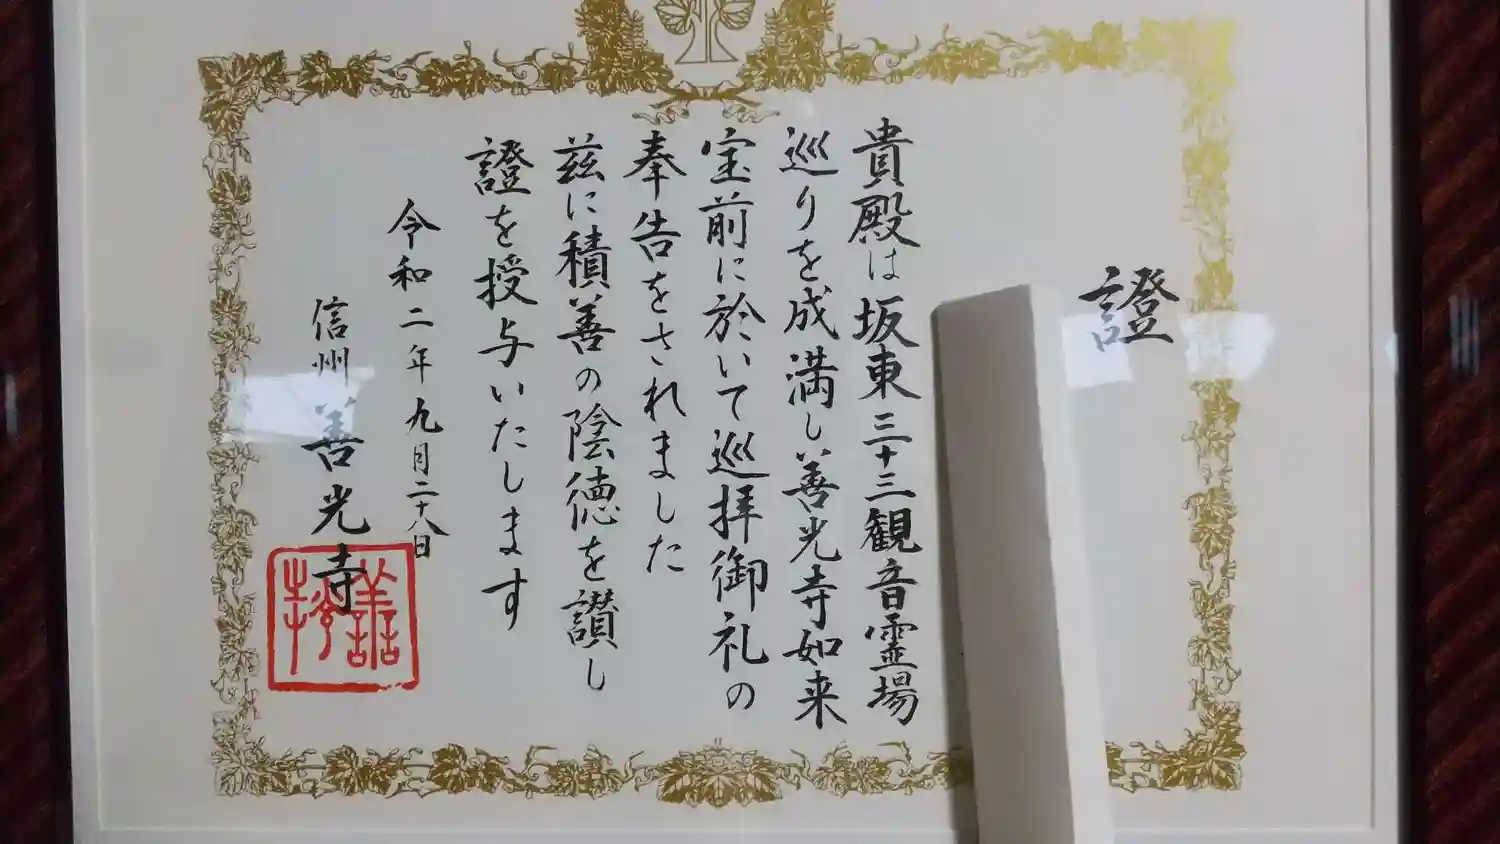 證
貴殿は坂東三十三観音霊場
巡りを成満し善光寺如来
宝前に於いて巡拝御礼の
奉告をされました
茲に積善の陰徳を讃し
證を授与いたします
令和二年九月二十八日
信州 善光寺